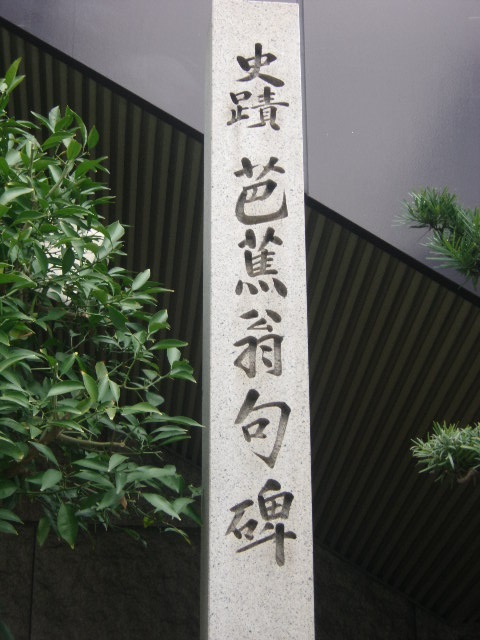 史蹟 芭蕉翁句碑